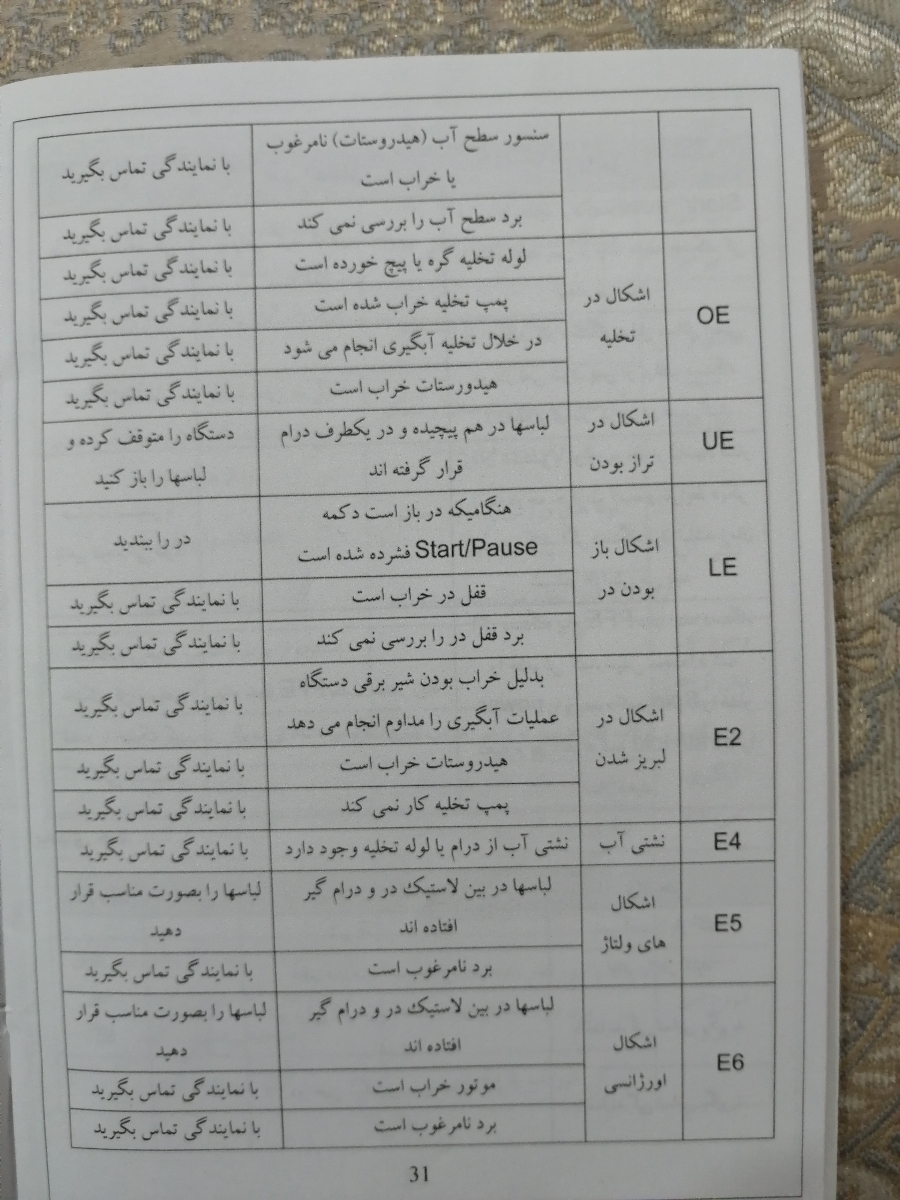 سنسور سطح آب (هیدروستات) نامرغوب
یا خراب است
با نمایندگی تماس بگیرید
برد سطح آب را بررسی نمی کند
با نمایندگی تماس بگیرید
OE
اشکال در
تخلیه
لوله تخلیه گره یا پیچ خورده است
با نمایندگی تماس بگیرید
پمپ تخلیه خراب شده است
با نمایندگی تماس بگیرید
در خلال تخلیه آبگیری انجام می شود
با نمایندگی تماس بگیرید
هیدورستات خراب است
با نمایندگی تماس بگیرید
UE
اشکال در
تراز بودن
لباسها در هم پیچیده و در یکطرف درام
قرار گرفته اند
دستگاه را متوقف کرده و
لباسها را باز کنید
LE
اشکال باز
بودن در
هنگامیکه در باز است دکمه
Start/Pause فشرده شده است
در را ببندید
قفل در خراب است
با نمایندگی تماس بگیرید
برد قفل در را بررسی نمی کند
با نمایندگی تماس بگیرید
E2
اشکال در
لبریز شدن
بدلیل خراب بودن شیر برقی دستگاه
عملیات آبگیری را مداوم انجام می دهد
با نمایندگی تماس بگیرید
هیدروستات خراب است
با نمایندگی تماس بگیرید
پمپ تخلیه کار نمی کند
با نمایندگی تماس بگیرید
E4
نشتی آب
نشتی آب از درام یا لوله تخلیه وجود دارد
با نمایندگی تماس بگیرید
E5
اشکال
های ولتاژ
لباسها در بین لاستیک در و درام گیر
افتاده اند
لباسها را بصورت مناسب قرار
دهید
برد نامرغوب است
با نمایندگی تماس بگیرید
E6
اشکال
اورژانسی
لباسها در بین لاستیک در و درام گیر
افتاده اند
لباسها را بصورت مناسب قرار
دهید
موتور خراب است
با نمایندگی تماس بگیرید
برد نامرغوب است
با نمایندگی تماس بگیرید
31